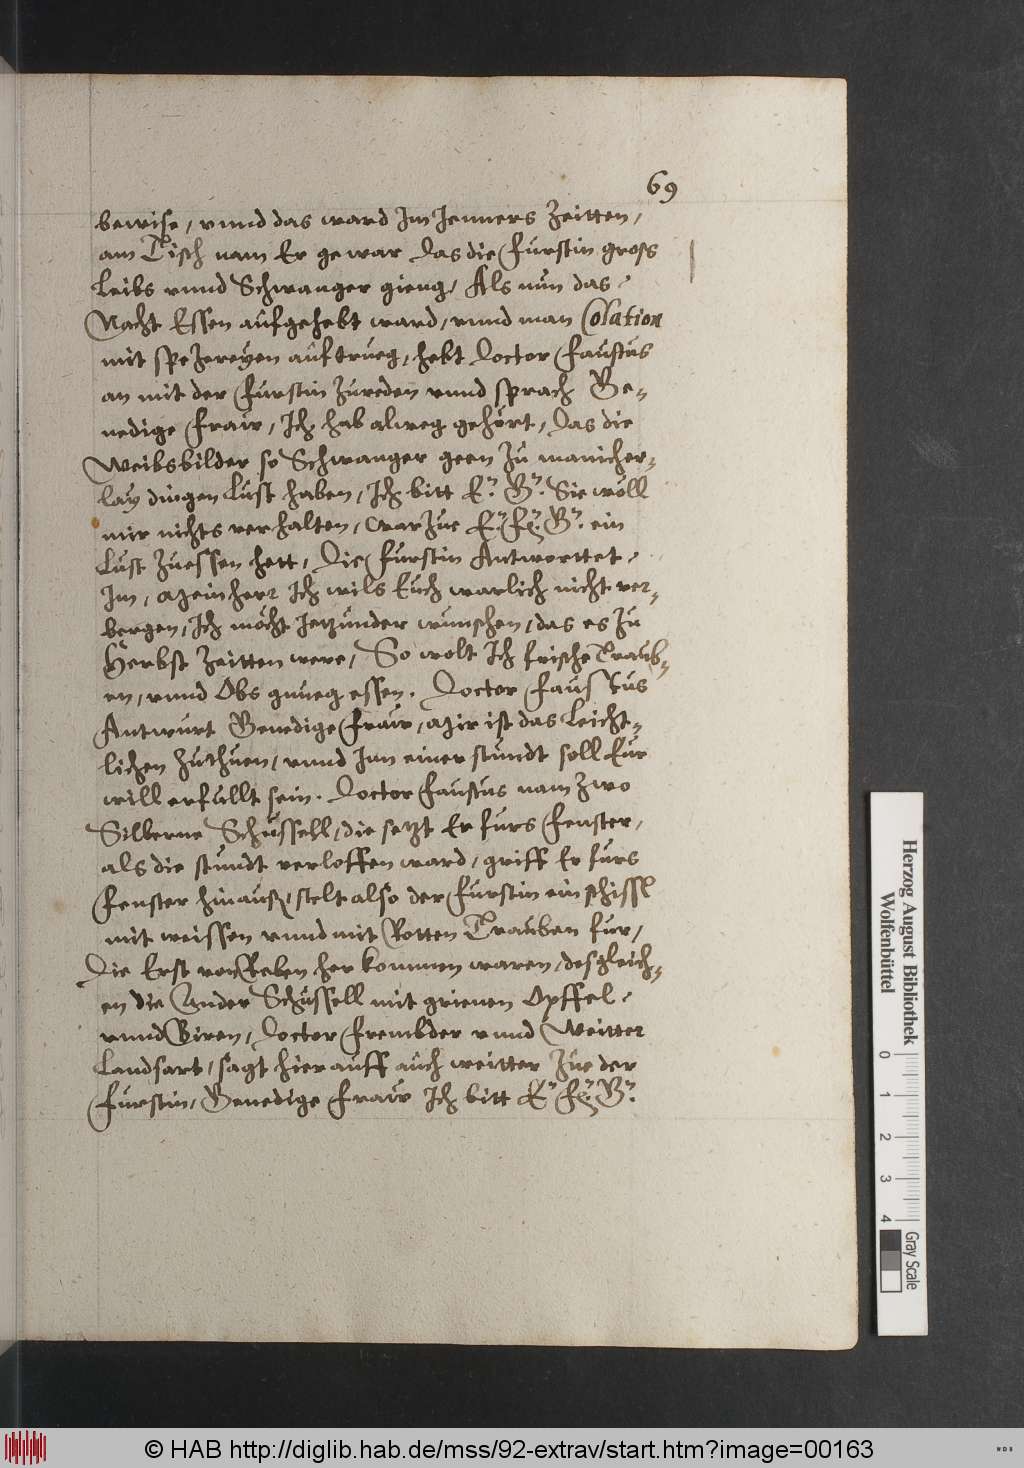 69
bewise, vnnd das ward Im Jenners Zeitten,
am Tisch nam Er gewar das die Furstin gross
Leibs vnnd Schwanger gieng, Als nun das
Nacht Essen aufgehebt ward, vnnd man Colation
mit spezereyen auftrueg, hebt Doctor Faustus
an mit der Furstin Zureden vnnd sprach Ge-
nedige Fraw, Ich hab alweg gehört, das die
Weibsbilder so Schwanger geen zu manicher-
lay dingen Lust haben, Ich bitt E. G. Sie wöll
mir nichts verhalten, warzue E. F. G. ein
Lust Zuessen hett, Die Furstin Antworttet
Im, Mein herr Ich wils Euch warlich nicht ver-
bergen, Ich möcht Jetzunder wunschen, das es zu
Herbst Zeitten were, So wolt Ich frische Traub-
en, vnnd Obs gnueg essen. Doctor Faustus
Antwurt Genedige Fraw, Mir ist das Leicht-
lichen Zuthuen, vnnd Inn einer stundt soll Eur
will erfullt sein. Doctor Faustus nam zwo
Silberne Schüssell, die setzt Er furs Fenster,
als die stundt verloffen ward, griff Er furs
Fenster hinauß, stelt also der Furstin ein schissl
mit weissen vnnd mit Rotten Trauben fur,
Die Erst von Reben her kommen waren, desgleich-
en die Ander Schüssell mit grienen Opffel
vnnd Biren, Doctor Frembder vnnd Weitter
Landsart, sagt hierauff auch weitter Zue der
Furstin, Genedige Fraw Ich bitt E. F. G.
Herzog August Bibliothek
Wolfenbüttel
0 1 2 3 4
Gray Scale
© HAB http://diglib.hab.de/mss/92-extrav/start.htm?image=00163